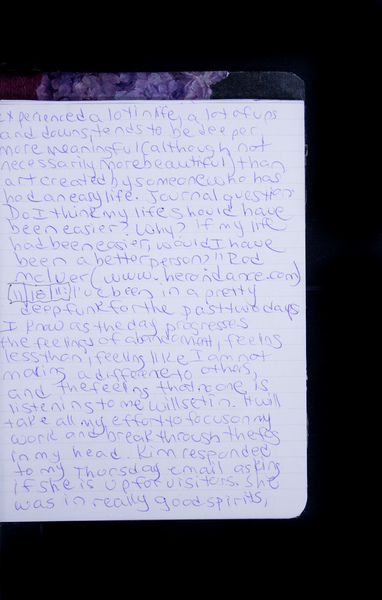 experienced a lot in life, a lot of ups
and downs, tends to be deeper,
more meaningful (although not
necessarily more beautiful) than
art created by someone who has
had an easy life. Journal question:
Do I think my life should have
been easier? Why? If my life
had been easier, would I have
been a better person?" Rod
McIver (www.herondance.com)
11 18 11: I've been in a pretty
deep funk for the past two days
I know as the day progresses
the feelings of abandonment, feeling
less than, feeling like I am not
making a difference to others,
and the feeling that no one is
listening to me will set in. It will
take all my effort to focus on my
work and break through the
in my head. Kim responded
to my Thursday email asking
if she is up for visitors. She
was in really good spirits,